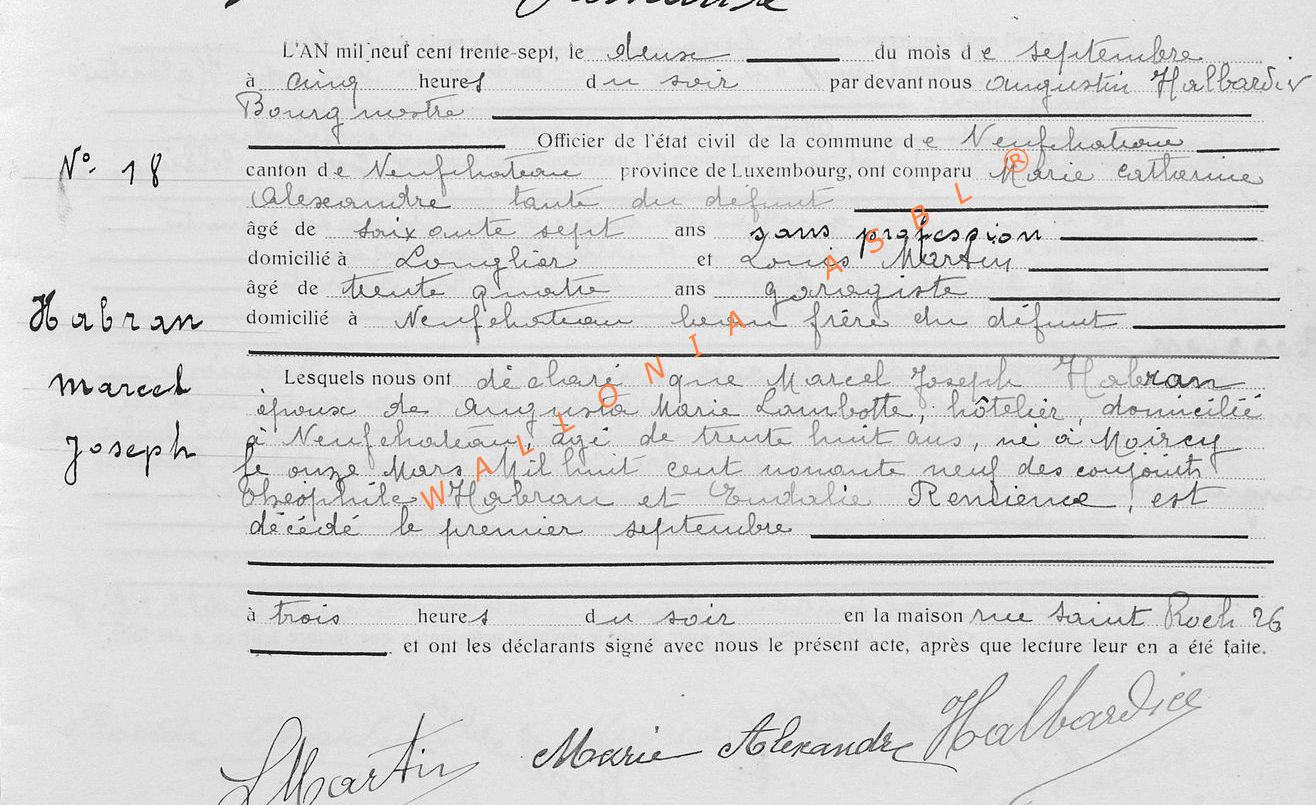 L'AN mil neuf cent trente-sept, le deux du mois de septembre
à cinq heures du soir par devant nous Augustin Halbardier
Bourgmestre
Officier de l'état civil de la commune de Neufchateau
N° 18
canton de Neufchateau province de Luxembourg, ont comparu Marie Catherine
Alexandre tante du défunt
âgé de soixante sept ans sans profession
domicilié à Longlier et Louis Martin
âgé de trente quatre ans garagiste
domicilié à Neufchateau beau frère du défunt
Habran
Marcel
Joseph
Lesquels nous ont déclaré que Marcel Joseph Habran
époux de Augusta Marie Lambotte, hôtelier, domicilié
à Neufchateau, âgé de trente huit ans, né à Moircy
le onze Mars Mil huit cent nonante neuf des conjoints
Théophile Habran et Eudalie Rensience, est
décédé le premier septembre
à trois heures du soir en la maison rue Saint Roch 26
et ont les déclarants signé avec nous le présent acte, après que lecture leur en a été faite.
LMartin Marie Alexandre Halbardier
WALLONIA ASBL ®